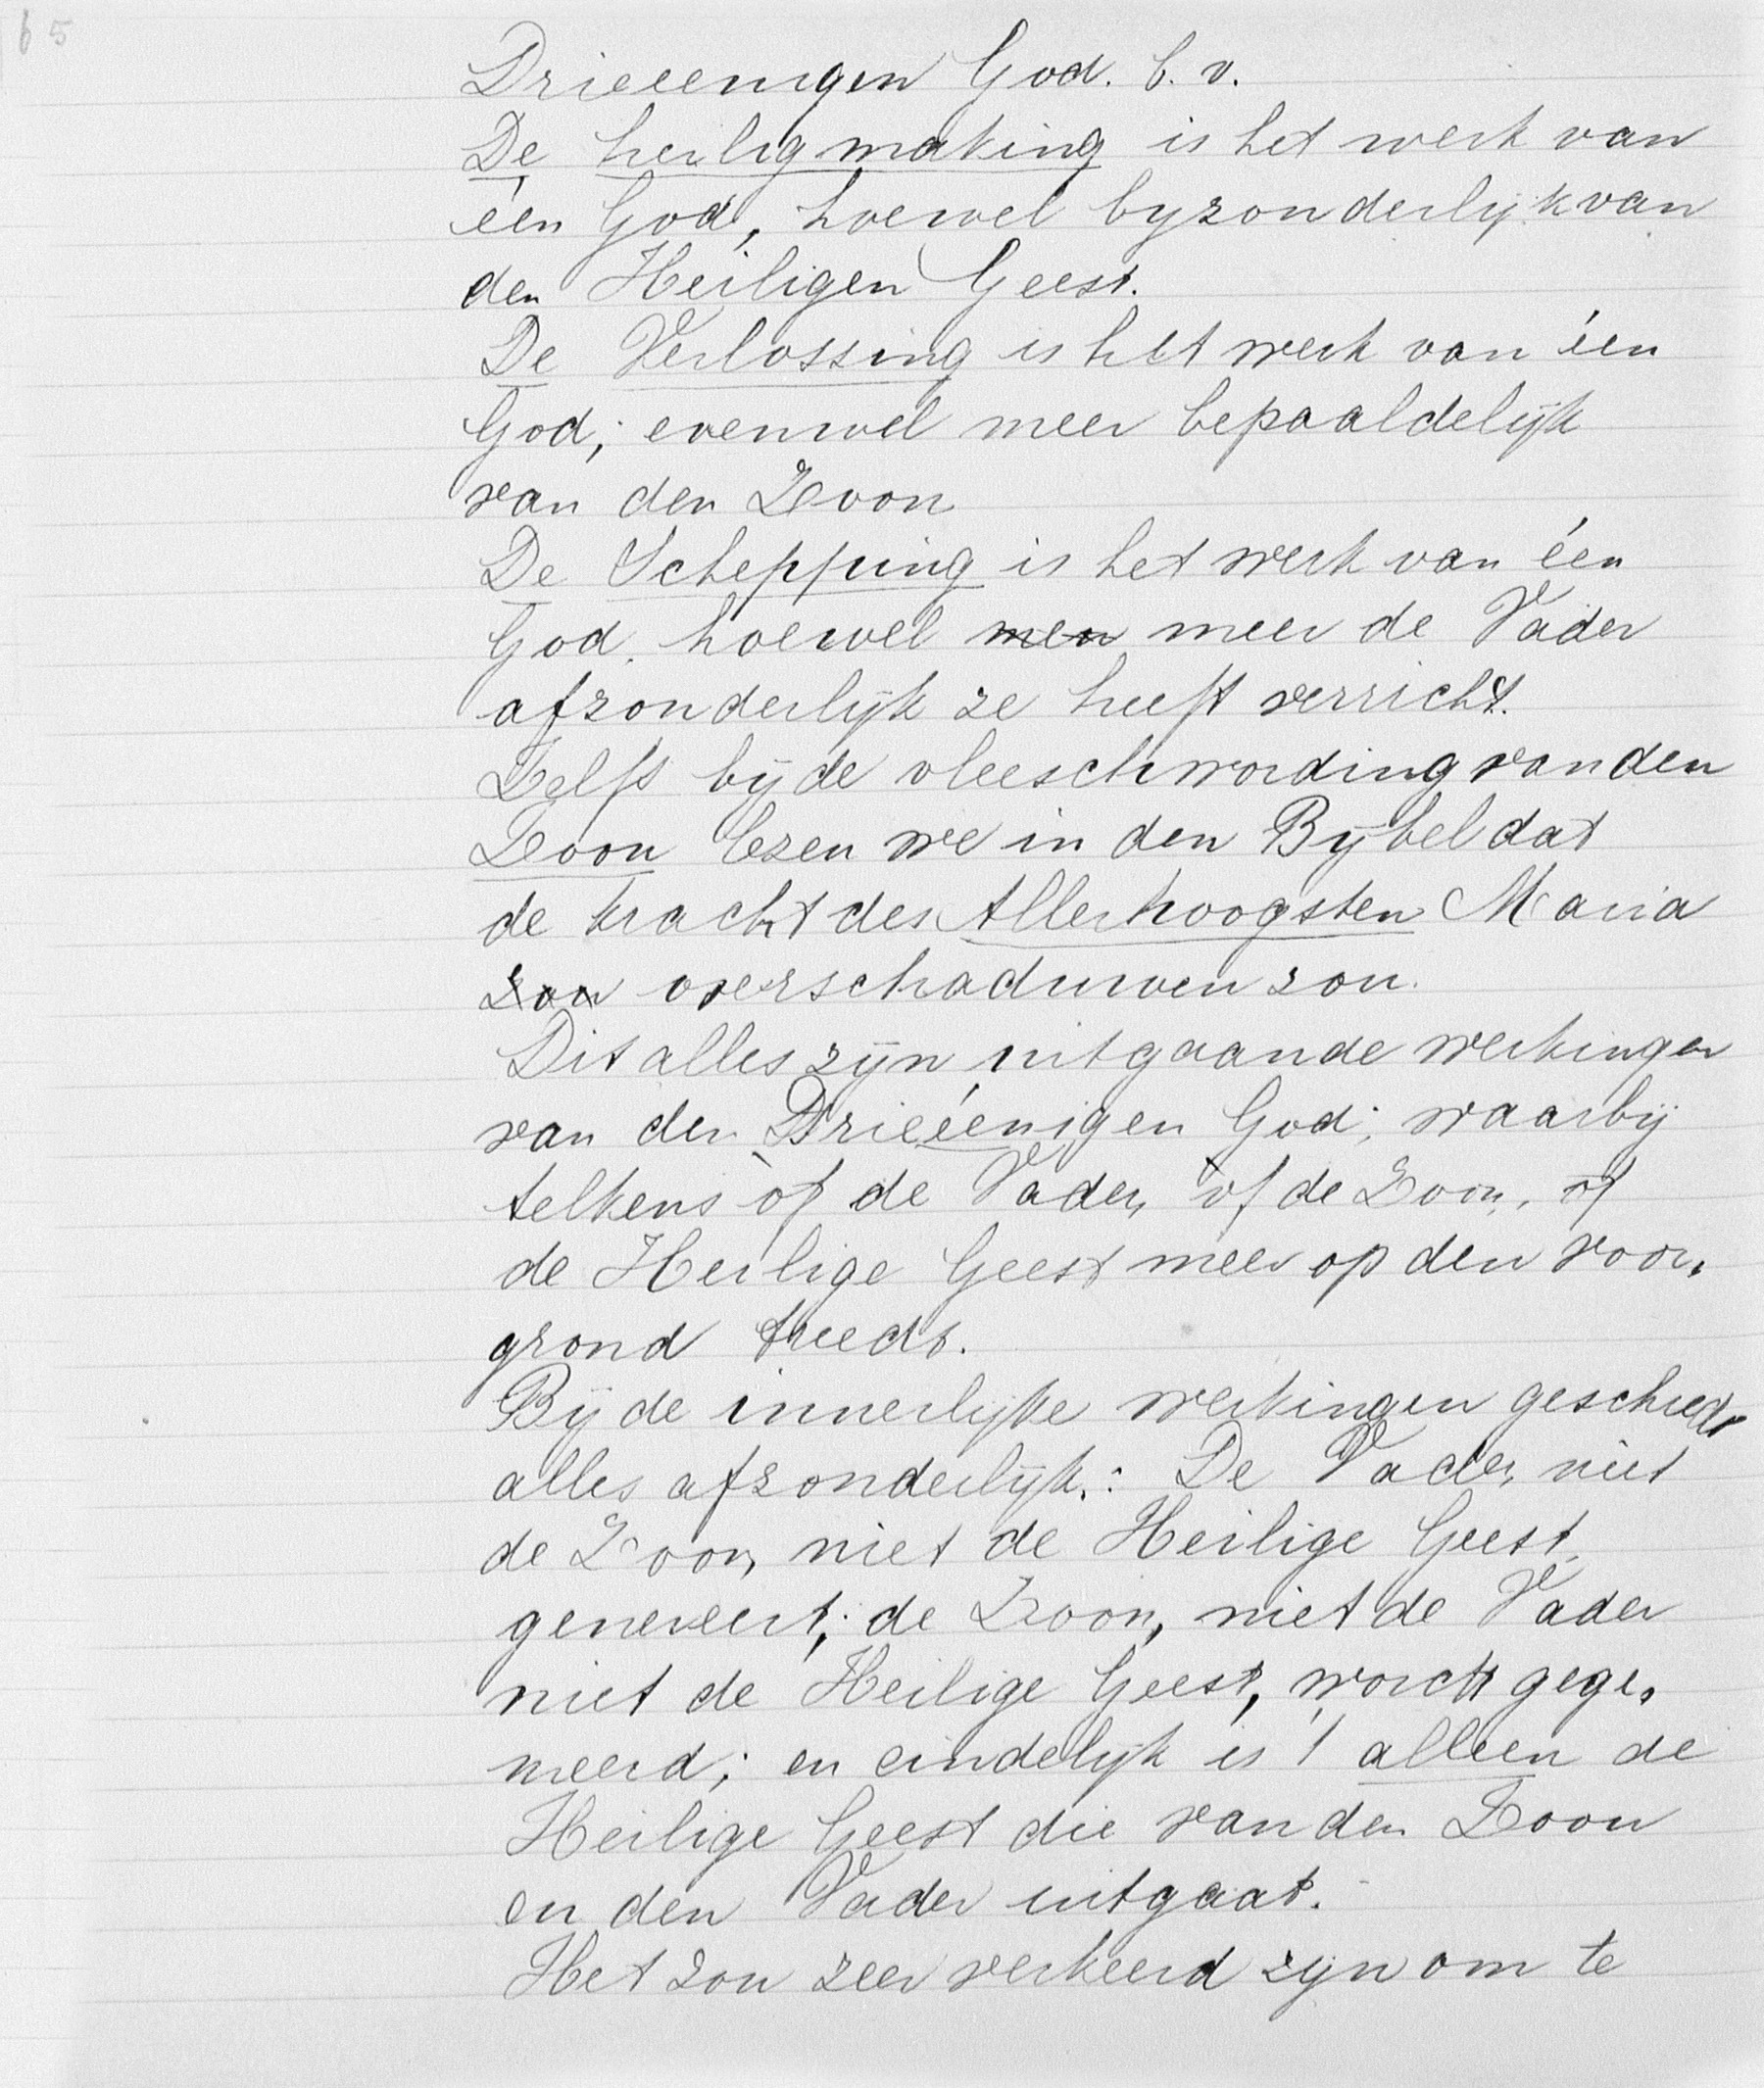 65
Drieeenigen God. b. v.
De heiligmaking is het werk van
één God, hoewel byzonderlijk van
den Heiligen Geest.
De Verlossing is het werk van één
God; evenwel meer bepaaldelijk
van den Zoon
De Schepping is het werk van één
God. hoewel men meer de Vader
afzonderlijk ze heeft verricht.
Zelfs bij de vleeschwording van den
Zoon lezen we in den Bijbel dat
de kracht des Allerhoogsten Maria
zou overschaduwen zou.
Dit alles zijn uitgaande werkingen
van den Drieéenigen God; waarbij
telkens òf de Vader, òf de Zoon, òf
de Heilige Geest meer op den voor,
grond treedt.
Bij de innerlijke werkingen geschiedt
alles afzonderlijk.: De Vader, niet
de Zoon, niet de Heilige Geest,
genereert; de Zoon, niet de Vader
niet de Heilige Geest, wordt gege,
neerd; en eindelijk is 't alleen de
Heilige Geest die van den Zoon
en den Vader uitgaat.
Het zou zeer verkeerd zijn om te